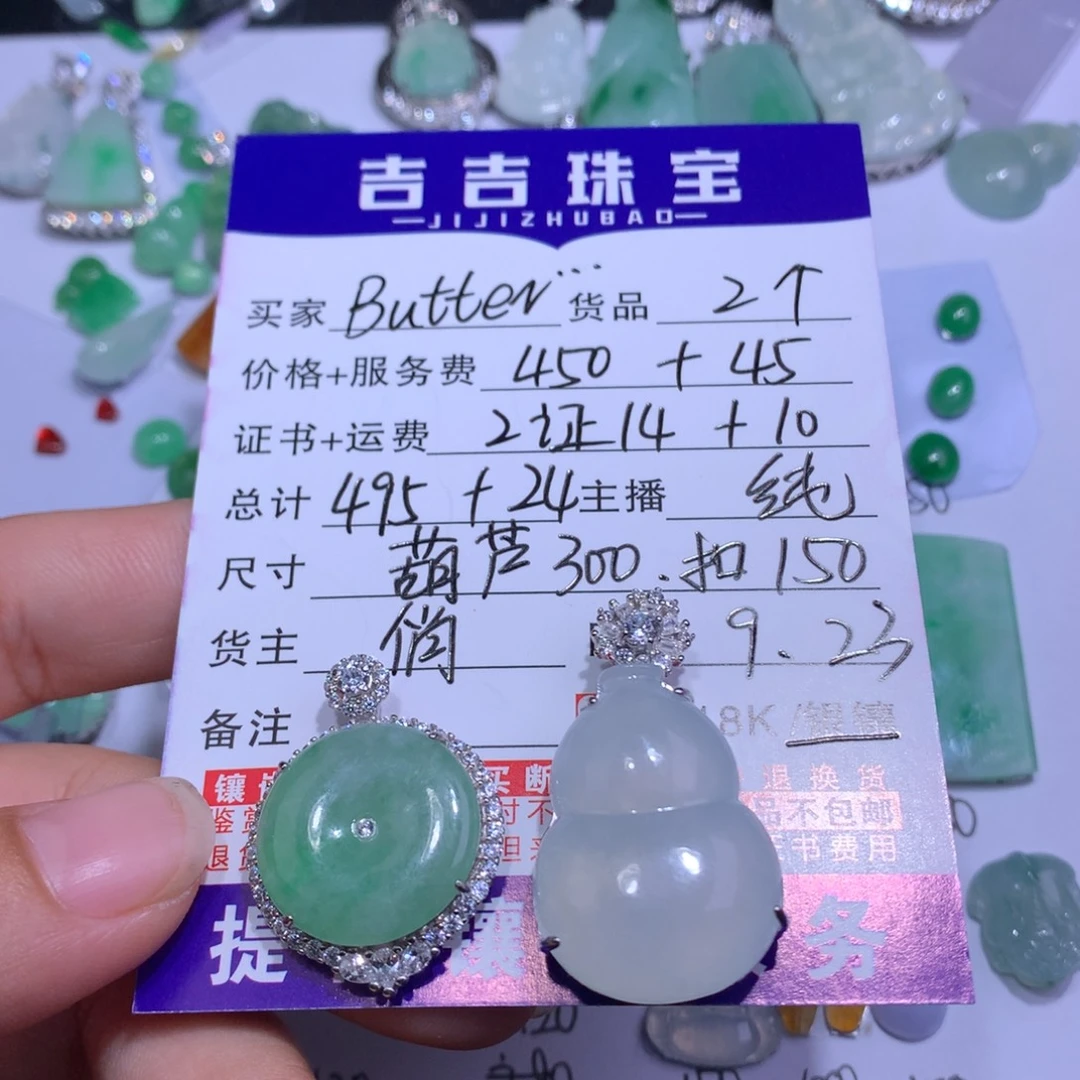 吉吉珠宝
JIJIZHUBAO
买家 Butter... 货品 2个
价格+服务费 450 + 45
证书+运费 2证14 + 10
总计 495 + 24 主播 纯
尺寸 葫芦300.扣150
货主 俏 9.23
备注 18K/银镶
镶 买断 退换货
鉴 付不 品不包邮
退货 但 书费用
提 镶 务